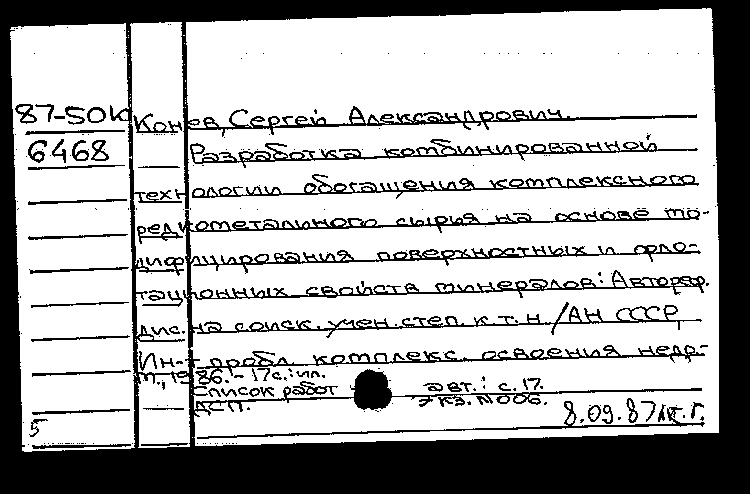 87-50к Конев, Сергей Александрович.
6468 Разработка комбинированной
технологии обогащения комплексного
редкометалльного сырья на основе мо-
дифицирования поверхностных и фло-
тационных свойств минералов: Автореф.
дис. на соиск. учен. степ. к.т.н. /АН СССР,
Ин-т пробл. комплекс. освоения недр.-
М., 1986.- 17с.: ил.
Список работ авт.: с. 17.
ДСП. Экз. N006.
8.09.87
5